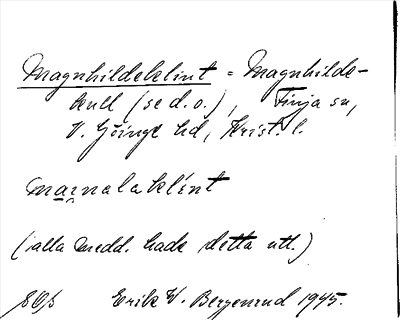 Magnhildeklint = Magnhilde-
kull (se d. o.), Finja sn,
V. Göinge hd, Krist. l.
maɡnalaklint
(alla medd. hade detta utt.)
Erik W. Bergenrud 1945.